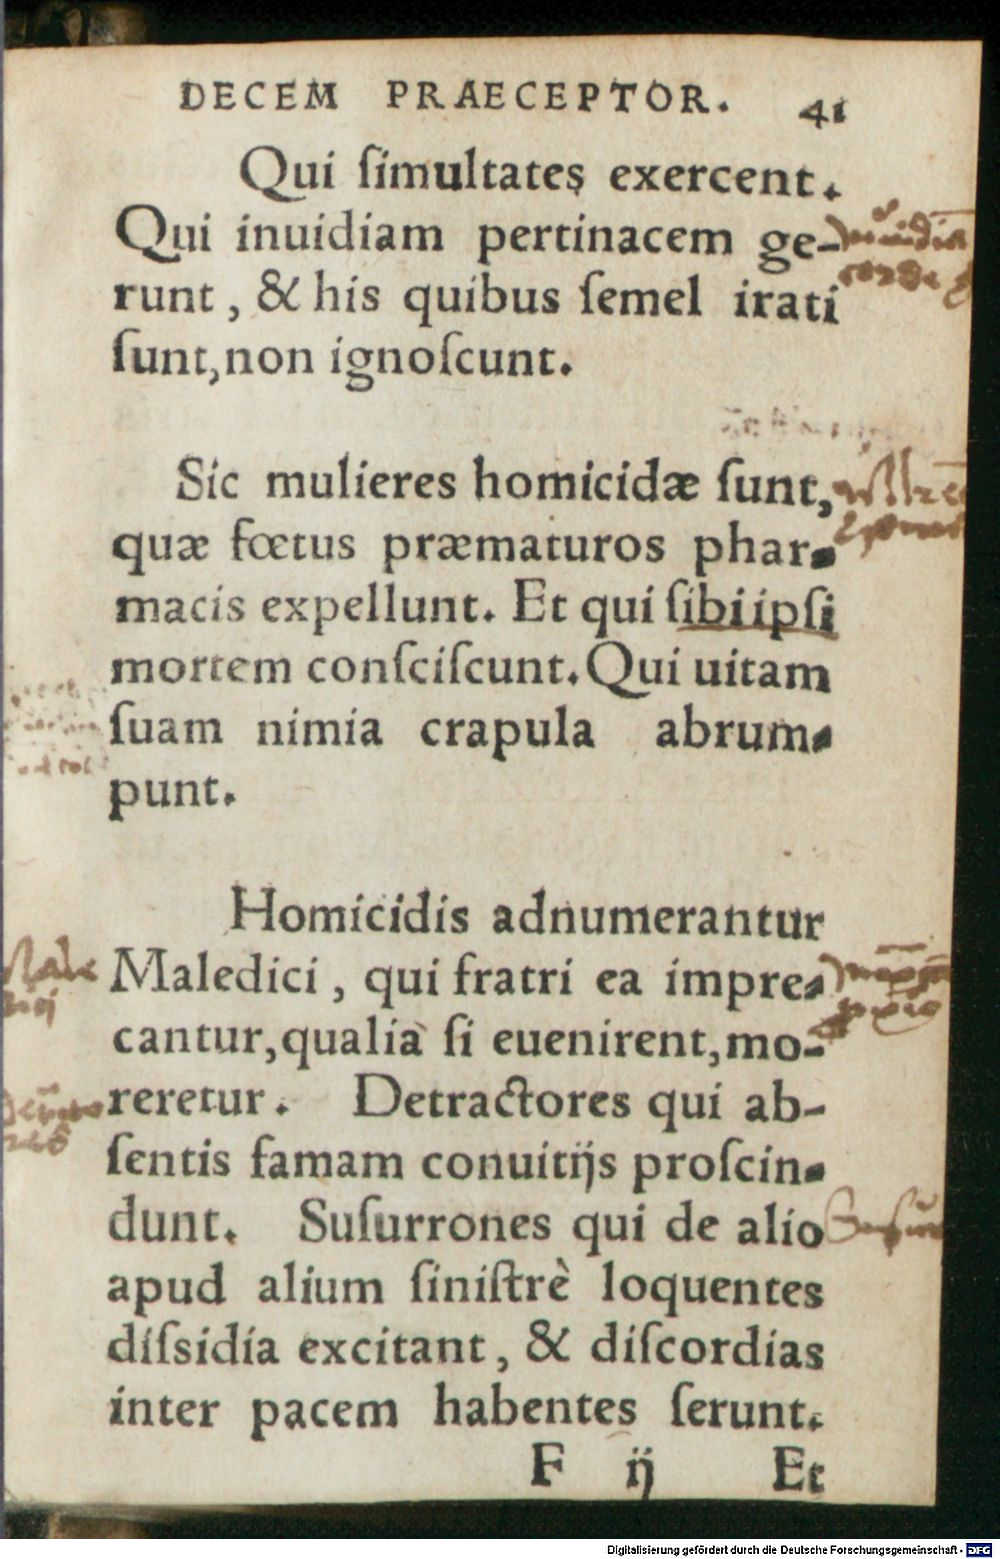 DECEM PRAECEPTOR. 41
Qui ſimultates exercent.
Qui inuidiam pertinacem ge-
runt, & his quibus ſemel irati
ſunt, non ignoſcunt.
Sic mulieres homicidæ ſunt,
quæ fœtus præmaturos phar-
macis expellunt. Et qui ſibi ipſi
mortem conſciſcunt. Qui uitam
ſuam nimia crapula abrum-
punt.
Homicidis adnumerantur
Maledici, qui fratri ea impre-
cantur, qualia ſi euenirent, mo-
reretur. Detractores qui ab-
ſentis famam conuitijs proſcin-
dunt. Suſurrones qui de alio
apud alium ſiniſtrè loquentes
diſsidia excitant, & diſcordias
inter pacem habentes ſerunt.
F ij Et
Digitalisierung gefördert durch die Deutsche Forschungsgemeinschaft - DFG